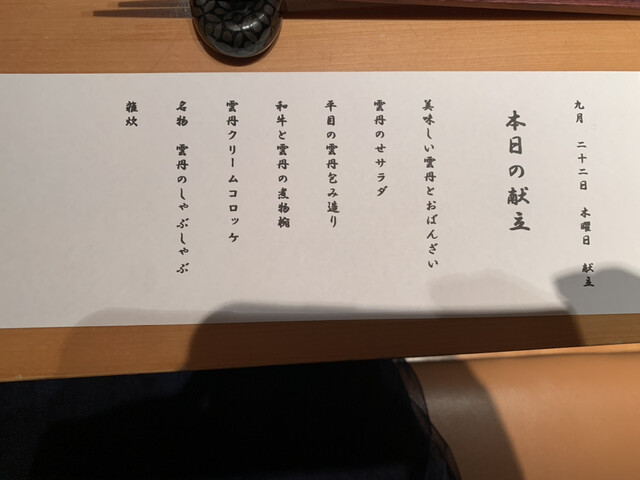 九月　二十二日　木曜日　献立
本日の献立
美味しい雲丹とおばんざい
雲丹のせサラダ
平目の雲丹包み造り
和牛と雲丹の煮物椀
雲丹クリームコロッケ
名物　雲丹のしゃぶしゃぶ
雑炊